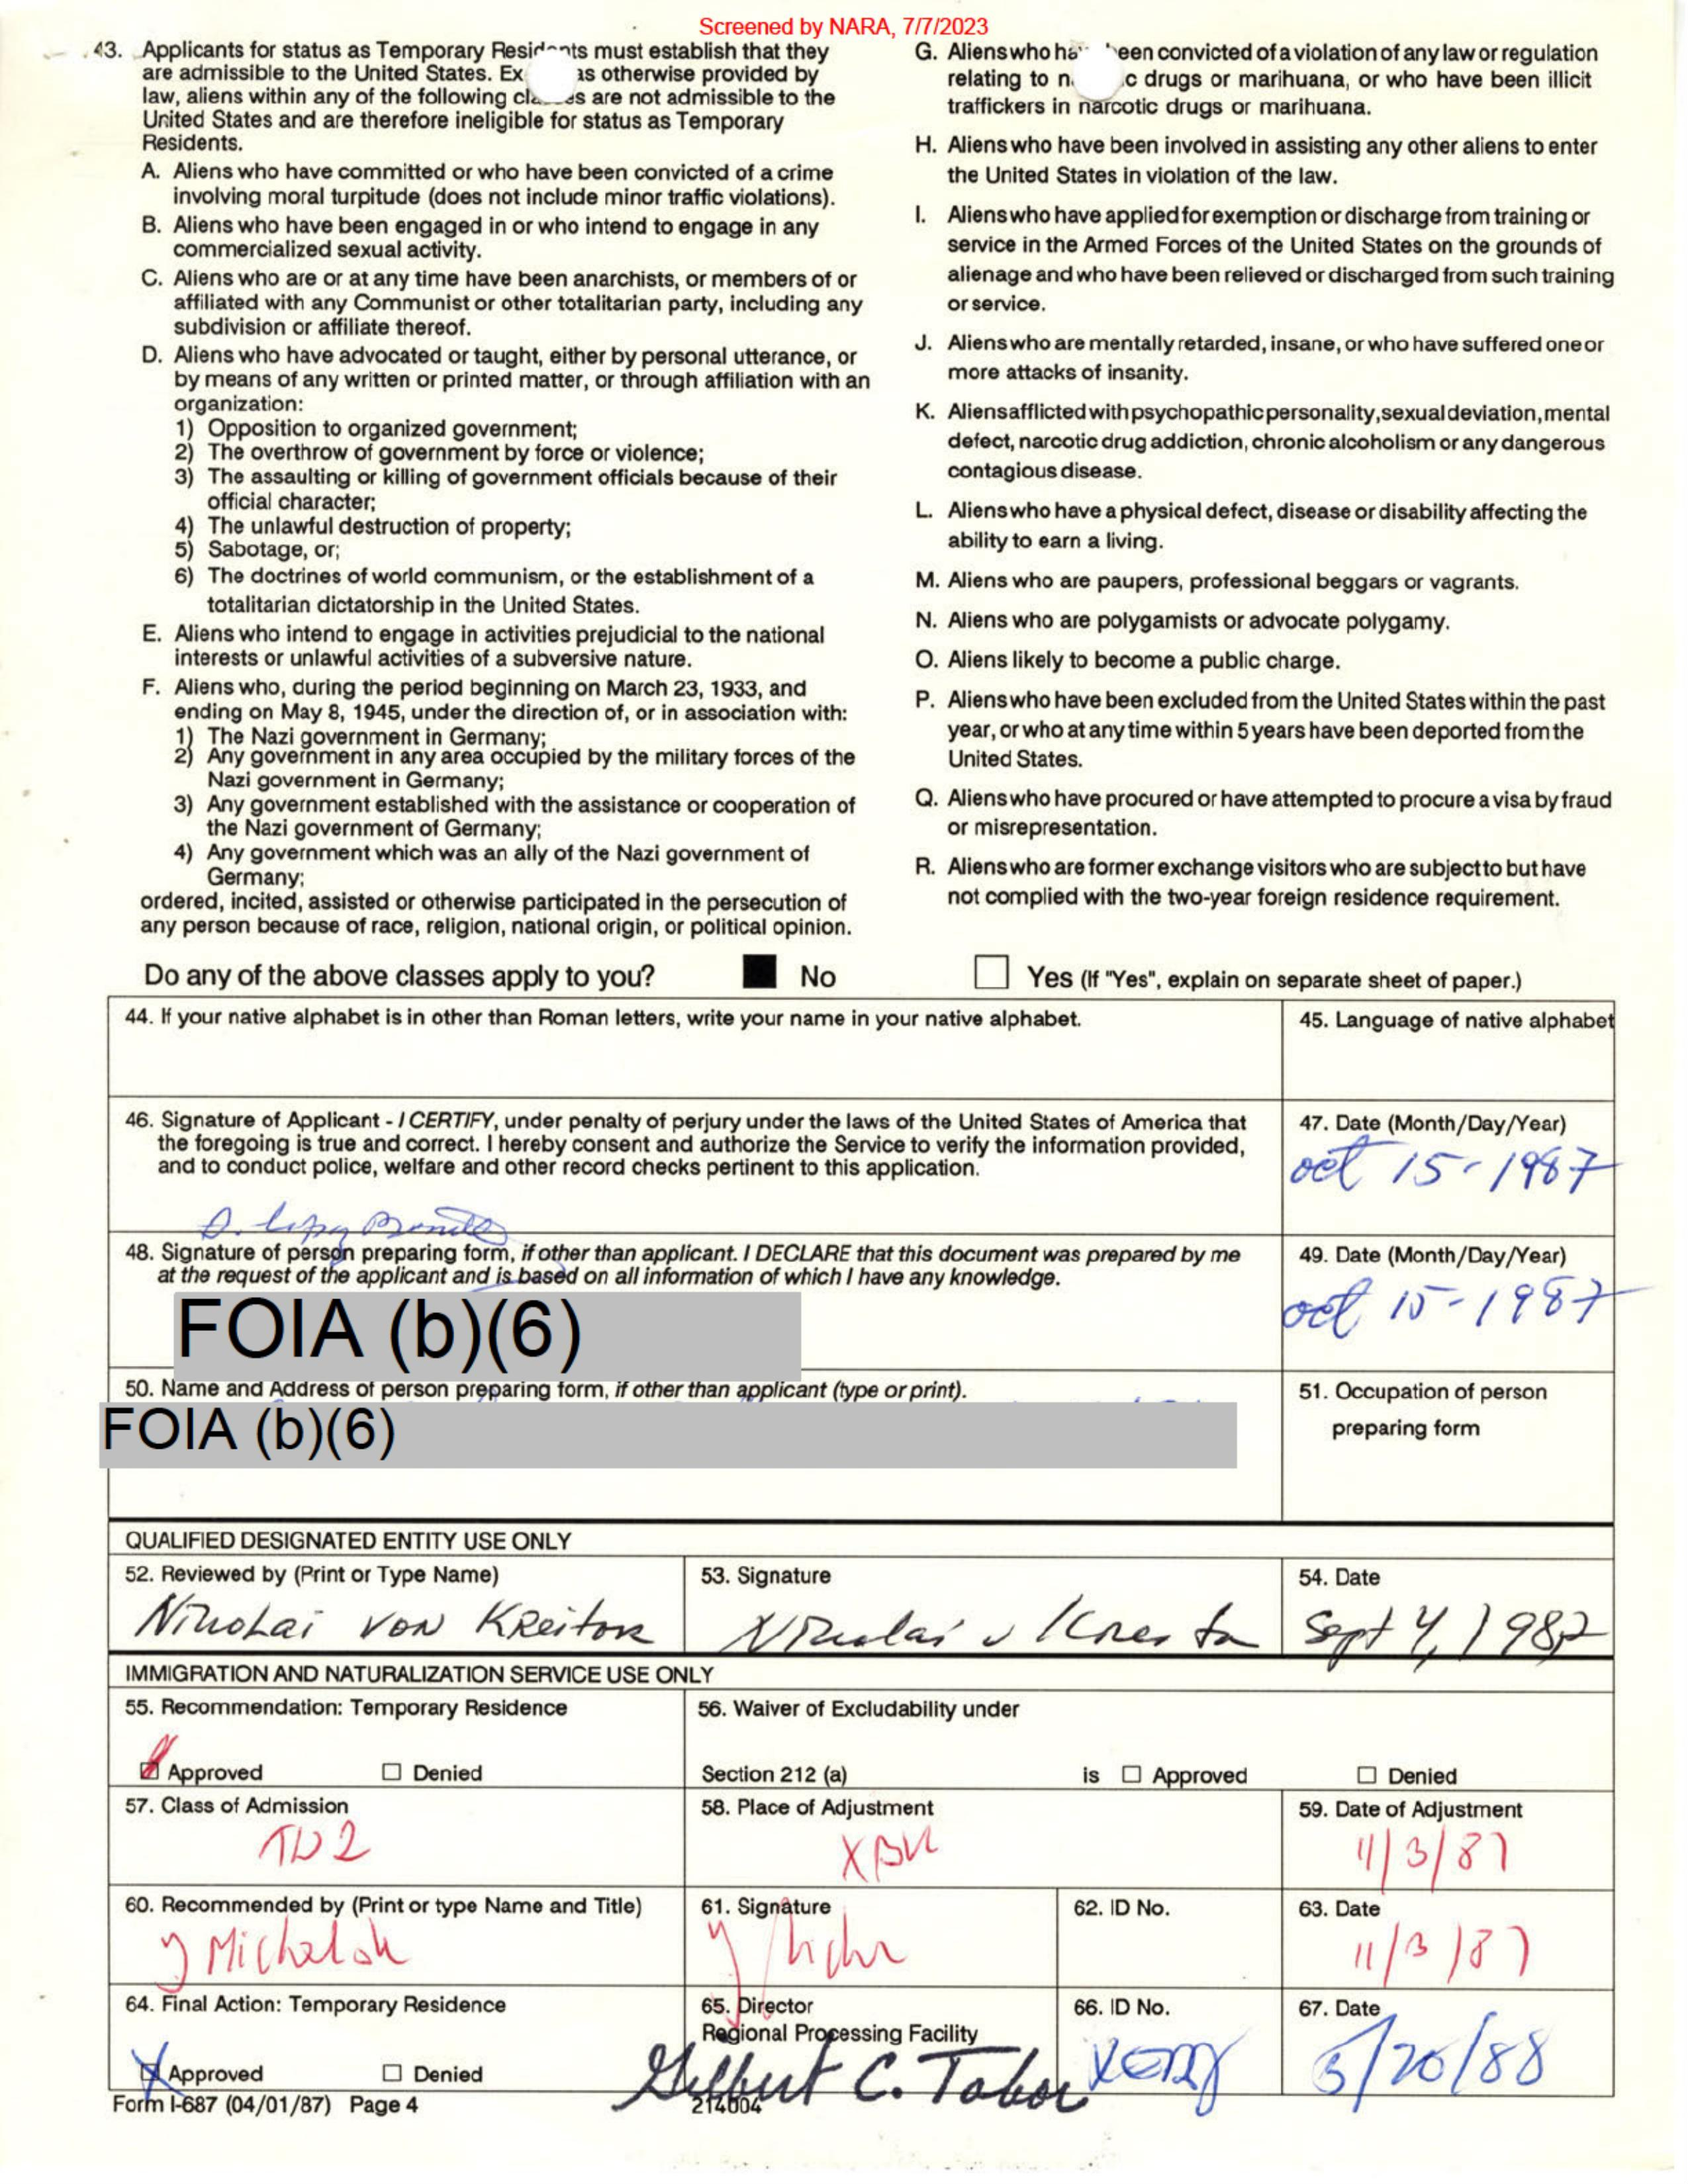 Screened by NARA, 7/7/2023
43. Applicants for status as Temporary Residents must establish that they
are admissible to the United States. Ex as otherwise provided by
law, aliens within any of the following classes are not admissible to the
United States and are therefore ineligible for status as Temporary
Residents.
A. Aliens who have committed or who have been convicted of a crime
involving moral turpitude (does not include minor traffic violations).
B. Aliens who have been engaged in or who intend to engage in any
commercialized sexual activity.
C. Aliens who are or at any time have been anarchists, or members of or
affiliated with any Communist or other totalitarian party, including any
subdivision or affiliate thereof.
D. Aliens who have advocated or taught, either by personal utterance, or
by means of any written or printed matter, or through affiliation with an
organization:
1) Opposition to organized government;
2) The overthrow of government by force or violence;
3) The assaulting or killing of government officials because of their
official character;
4) The unlawful destruction of property;
5) Sabotage, or;
6) The doctrines of world communism, or the establishment of a
totalitarian dictatorship in the United States.
E. Aliens who intend to engage in activities prejudicial to the national
interests or unlawful activities of a subversive nature.
F. Aliens who, during the period beginning on March 23, 1933, and
ending on May 8, 1945, under the direction of, or in association with:
1) The Nazi government in Germany;
2) Any government in any area occupied by the military forces of the
Nazi government in Germany;
3) Any government established with the assistance or cooperation of
the Nazi government of Germany;
4) Any government which was an ally of the Nazi government of
Germany;
ordered, incited, assisted or otherwise participated in the persecution of
any person because of race, religion, national origin, or political opinion.
G. Aliens who have been convicted of a violation of any law or regulation
relating to n c drugs or marihuana, or who have been illicit
traffickers in narcotic drugs or marihuana.
H. Aliens who have been involved in assisting any other aliens to enter
the United States in violation of the law.
I. Aliens who have applied for exemption or discharge from training or
service in the Armed Forces of the United States on the grounds of
alienage and who have been relieved or discharged from such training
or service.
J. Aliens who are mentally retarded, insane, or who have suffered one or
more attacks of insanity.
K. Aliens afflicted with psychopathic personality, sexual deviation, mental
defect, narcotic drug addiction, chronic alcoholism or any dangerous
contagious disease.
L. Aliens who have a physical defect, disease or disability affecting the
ability to earn a living.
M. Aliens who are paupers, professional beggars or vagrants.
N. Aliens who are polygamists or advocate polygamy.
O. Aliens likely to become a public charge.
P. Aliens who have been excluded from the United States within the past
year, or who at any time within 5 years have been deported from the
United States.
Q. Aliens who have procured or have attempted to procure a visa by fraud
or misrepresentation.
R. Aliens who are former exchange visitors who are subject to but have
not complied with the two-year foreign residence requirement.
Do any of the above classes apply to you? No Yes (If "Yes", explain on separate sheet of paper.)
44. If your native alphabet is in other than Roman letters, write your name in your native alphabet.
45. Language of native alphabet
46. Signature of Applicant - I CERTIFY, under penalty of perjury under the laws of the United States of America that
the foregoing is true and correct. I hereby consent and authorize the Service to verify the information provided,
and to conduct police, welfare and other record checks pertinent to this application.
47. Date (Month/Day/Year)
oct 15-1987
48. Signature of person preparing form, if other than applicant. I DECLARE that this document was prepared by me
at the request of the applicant and is based on all information of which I have any knowledge.
FOIA (b)(6)
49. Date (Month/Day/Year)
oct 15-1987
50. Name and Address of person preparing form, if other than applicant (type or print).
FOIA (b)(6)
51. Occupation of person
preparing form
QUALIFIED DESIGNATED ENTITY USE ONLY
52. Reviewed by (Print or Type Name)
Nikolai von Kreitor
53. Signature
54. Date
Sept 4, 1987
IMMIGRATION AND NATURALIZATION SERVICE USE ONLY
55. Recommendation: Temporary Residence
Approved Denied
56. Waiver of Excludability under
Section 212 (a) is Approved Denied
57. Class of Admission
58. Place of Adjustment
59. Date of Adjustment
11/3/87
60. Recommended by (Print or type Name and Title)
61. Signature
62. ID No.
63. Date
11/3/87
64. Final Action: Temporary Residence
Approved Denied
65. Director
Regional Processing Facility
Gilbert C. Tabor
66. ID No.
67. Date
5/20/88
Form I-687 (04/01/87) Page 4
214004